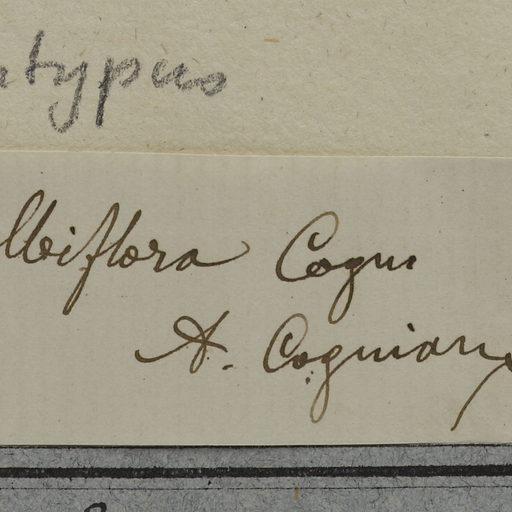 typus
lbiflora Cogn
A. Cogniaux